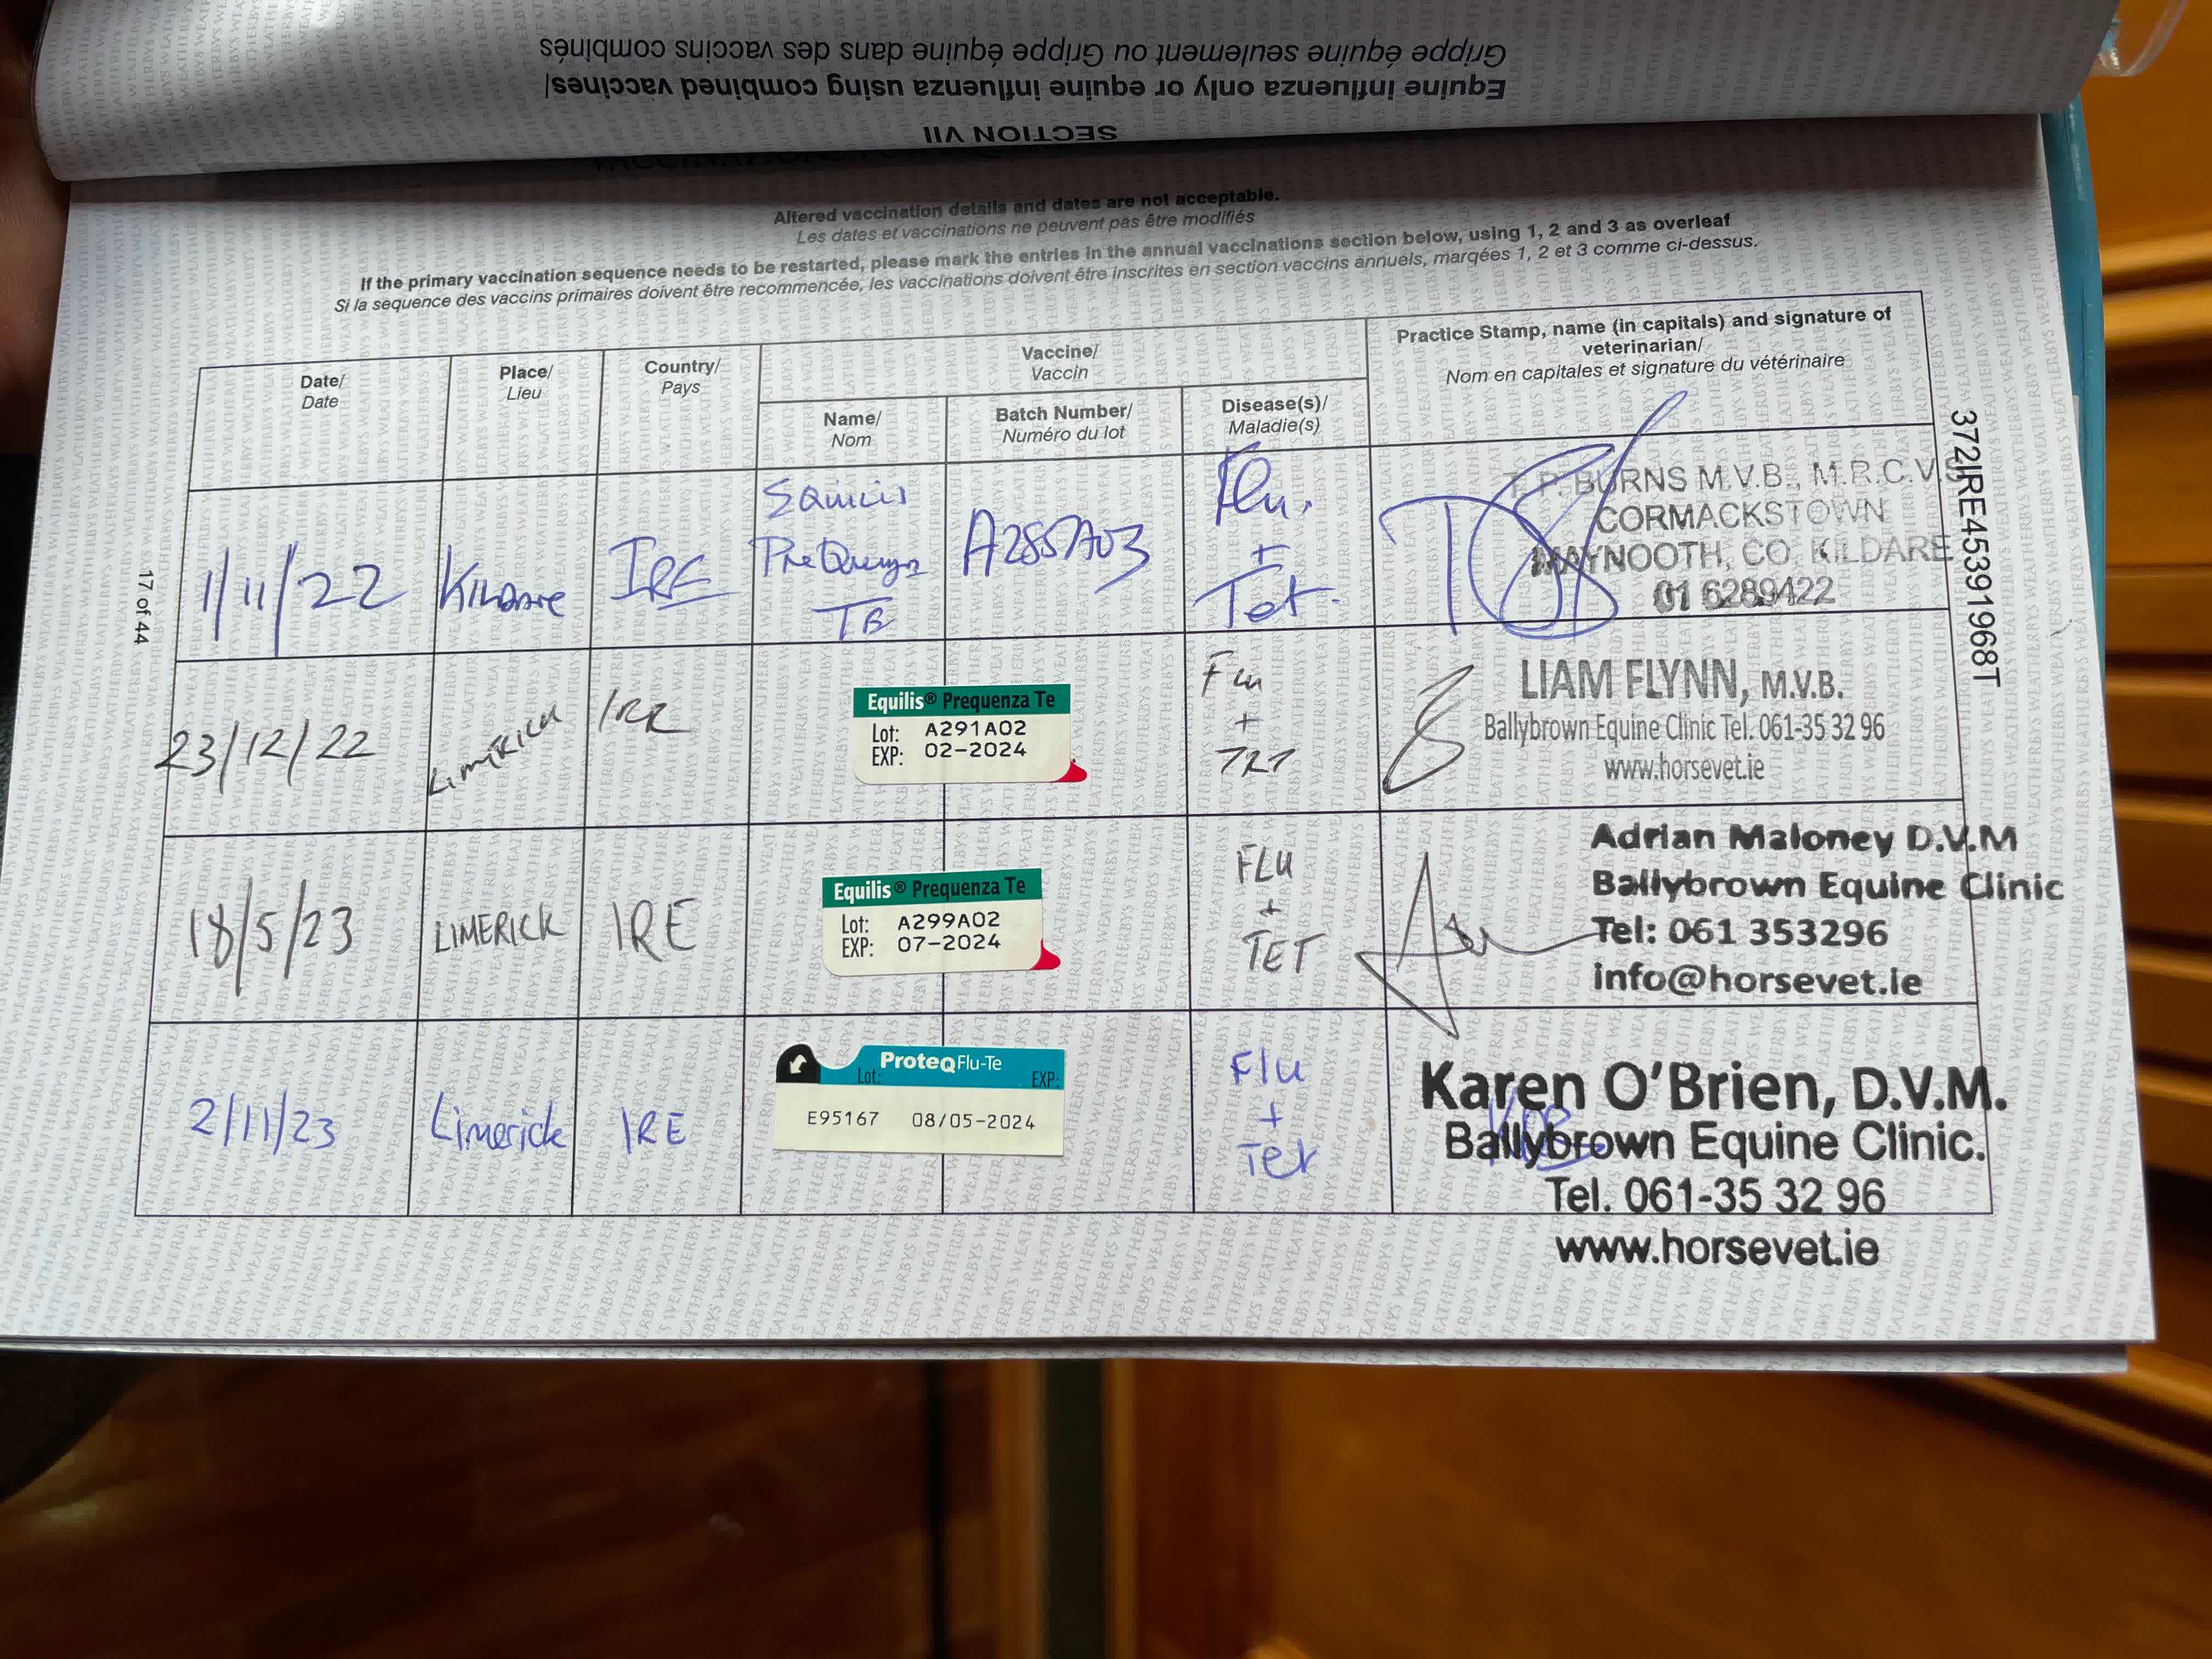 Grippe équine seulement ou Grippe équine dans des vaccins combinés
Equine influenza only or equine influenza using combined vaccines/
SECTION VII
Altered vaccination details and dates are not acceptable.
Les dates et vaccinations ne peuvent pas être modifiés
If the primary vaccination sequence needs to be restarted, please mark the entries in the annual vaccinations section below, using 1, 2 and 3 as overleaf
Si la sequence des vaccins primaires doivent être recommencée, les vaccinations doivent être inscrites en section vaccins annuels, marqées 1, 2 et 3 comme ci-dessus.
Date/
Date
Place/
Lieu
Country/
Pays
Vaccine/
Vaccin
Name/
Nom
Batch Number/
Numéro du lot
Disease(s)/
Maladie(s)
Practice Stamp, name (in capitals) and signature of
veterinarian/
Nom en capitales et signature du vétérinaire
1/11/22
KILDARE
IRE
A285A03
Flu.
+
Tet.
T. P. BURNS M.V.B., M.R.C.V.S
CORMACKSTOWN
MAYNOOTH, CO. KILDARE
01 6289422
23/12/22
LIMERICK
Equilis® Prequenza Te
Lot: A291A02
EXP: 02-2024
Flu
+
LIAM FLYNN, M.V.B.
Ballybrown Equine Clinic Tel. 061-35 32 96
www.horsevet.ie
18/5/23
LIMERICK
IRE
Equilis® Prequenza Te
Lot: A299A02
EXP: 07-2024
FLU
+
TET
Adrian Maloney D.V.M
Ballybrown Equine Clinic
Tel: 061 353296
info@horsevet.ie
2/11/23
Limerick
IRE
ProteqFlu-Te
Lot: EXP:
E95167 08/05-2024
Flu
+
Tet
Karen O'Brien, D.V.M.
Ballybrown Equine Clinic.
Tel. 061-35 32 96
www.horsevet.ie
17 of 44
372IRE45391968T